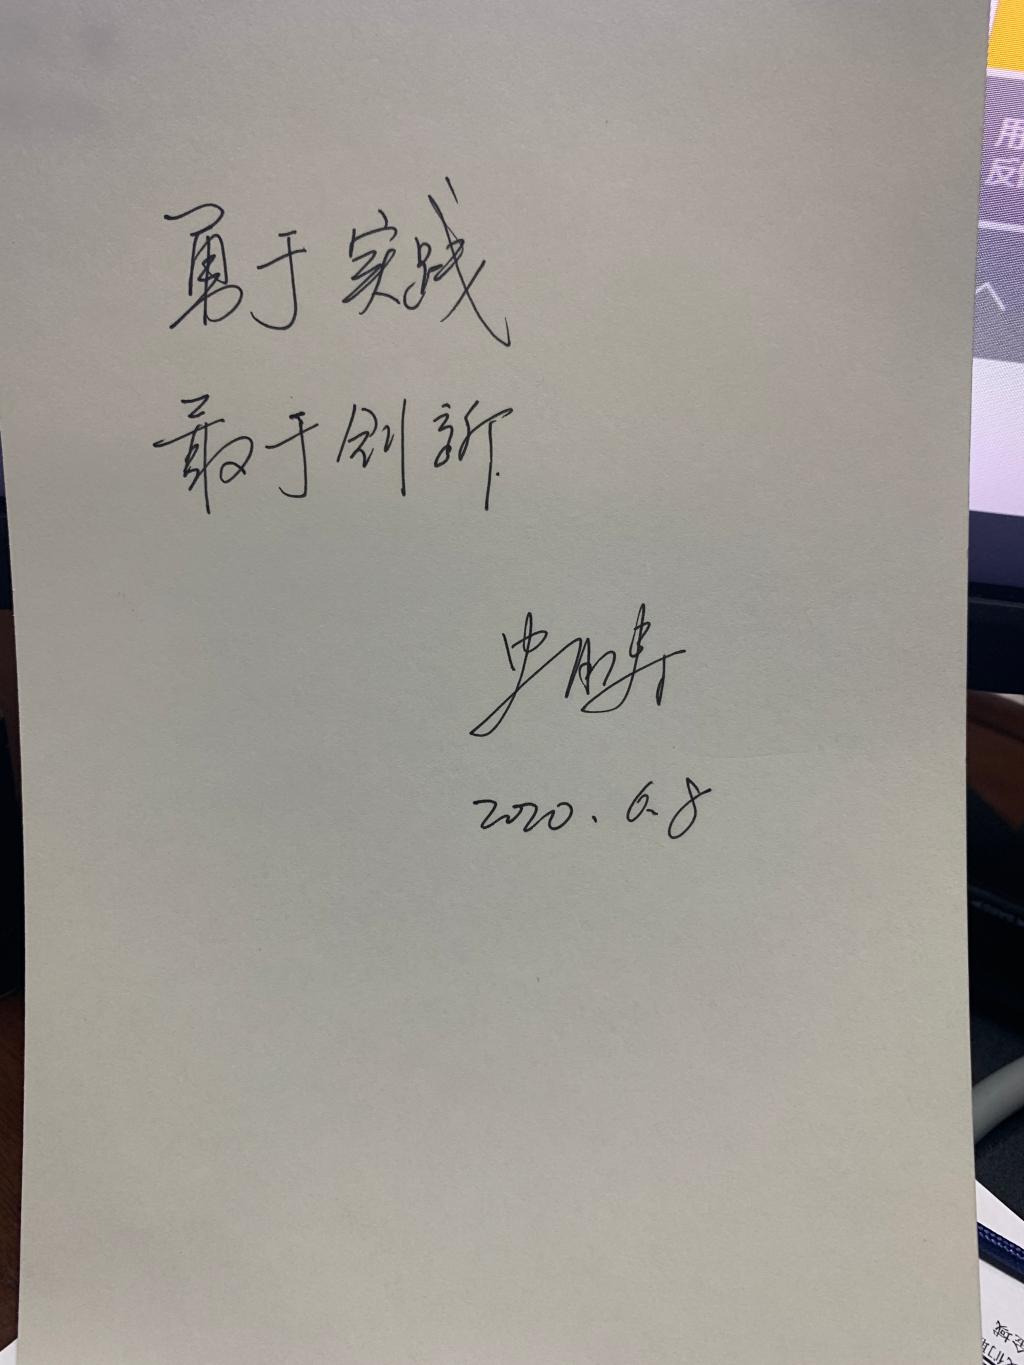 勇于实践
敢于创新
2020.6.8
用
反